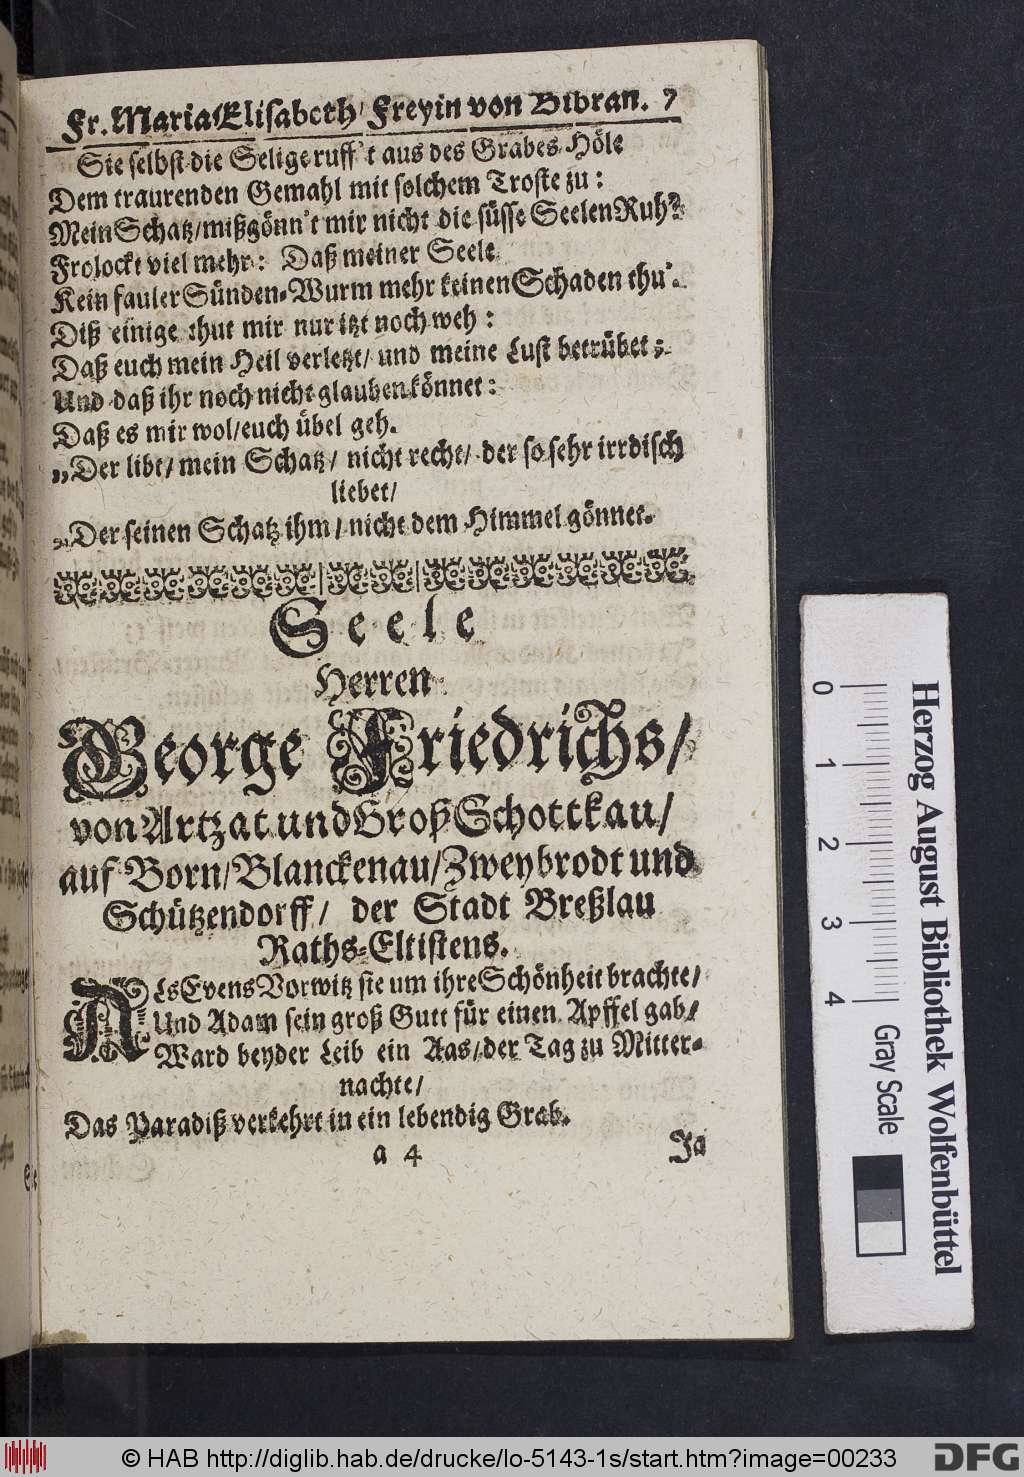 Fr. Maria Elisabeth/ Freyin von Bibran. 7
Sie selbst die Selige ruff't aus des Grabes Höle
Dem traurenden Gemahl mit solchem Troste zu:
Mein Schatz/ mißgönn't mir nicht die süsse Seelen Ruh?
Frolockt viel mehr: Daß meiner Seele
Kein fauler Sünden-Wurm mehr keinen Schaden thu'.
Diß einige thut mir nur itzt noch weh:
Daß euch mein Heil verletzt/ und meine Lust betrübet;
Und daß ihr noch nicht glauben könnet:
Daß es mir wol/ euch übel geh.
„Der libt/ mein Schatz/ nicht recht/ der so sehr irrdisch
liebet/
„Der seinen Schatz ihm/ nicht dem Himmel gönnet.
Seele
Herren
George Friedrichs/
von Artzat und Groß Schottkau/
auf Born/ Blanckenau/ Zweybrodt und
Schützendorff/ der Stadt Breßlau
Raths-Eltistens.
ALs Evens Vorwitz sie um ihre Schönheit brachte/
Und Adam sein groß Gutt für einen Apffel gab/
Ward beyder Leib ein Aas/ der Tag zu Mitter-
nachte/
Das Paradiß verkehrt in ein lebendig Grab.
a 4 Ja
0 1 2 3 4
Gray Scale
Herzog August Bibliothek Wolfenbüttel
© HAB http://diglib.hab.de/drucke/lo-5143-1s/start.htm?image=00233
DFG